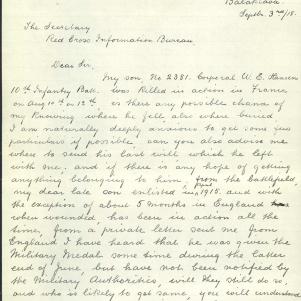 Balaklava
Septbr 3rd /18.
The Secretary
Red Cross Information Bureau
Dear Sir,
My son, No 2381. Corporal W. E. Hansen
10th Infantry Batt. was killed in action in France
on Aug 10th or 12th, is there any possible chance of
my knowing where he fell, also where buried
I am naturally deeply anxious to get some
particulars if possible, can you also advise me
where to send his last will which he left
with me. and if there is any hope of getting
anything belonging to him, from the Battlefield,
my dear late son enlisted in 1915. and with
the exception of about 5 months in England
when wounded has been in action all the
time, from a private letter sent me from
England I have heard that he was given the
Military Medal some time during the latter
end of June, but have not been notified by
the Military Authorities, will they still do so,
and who is likely to get same, you will understand